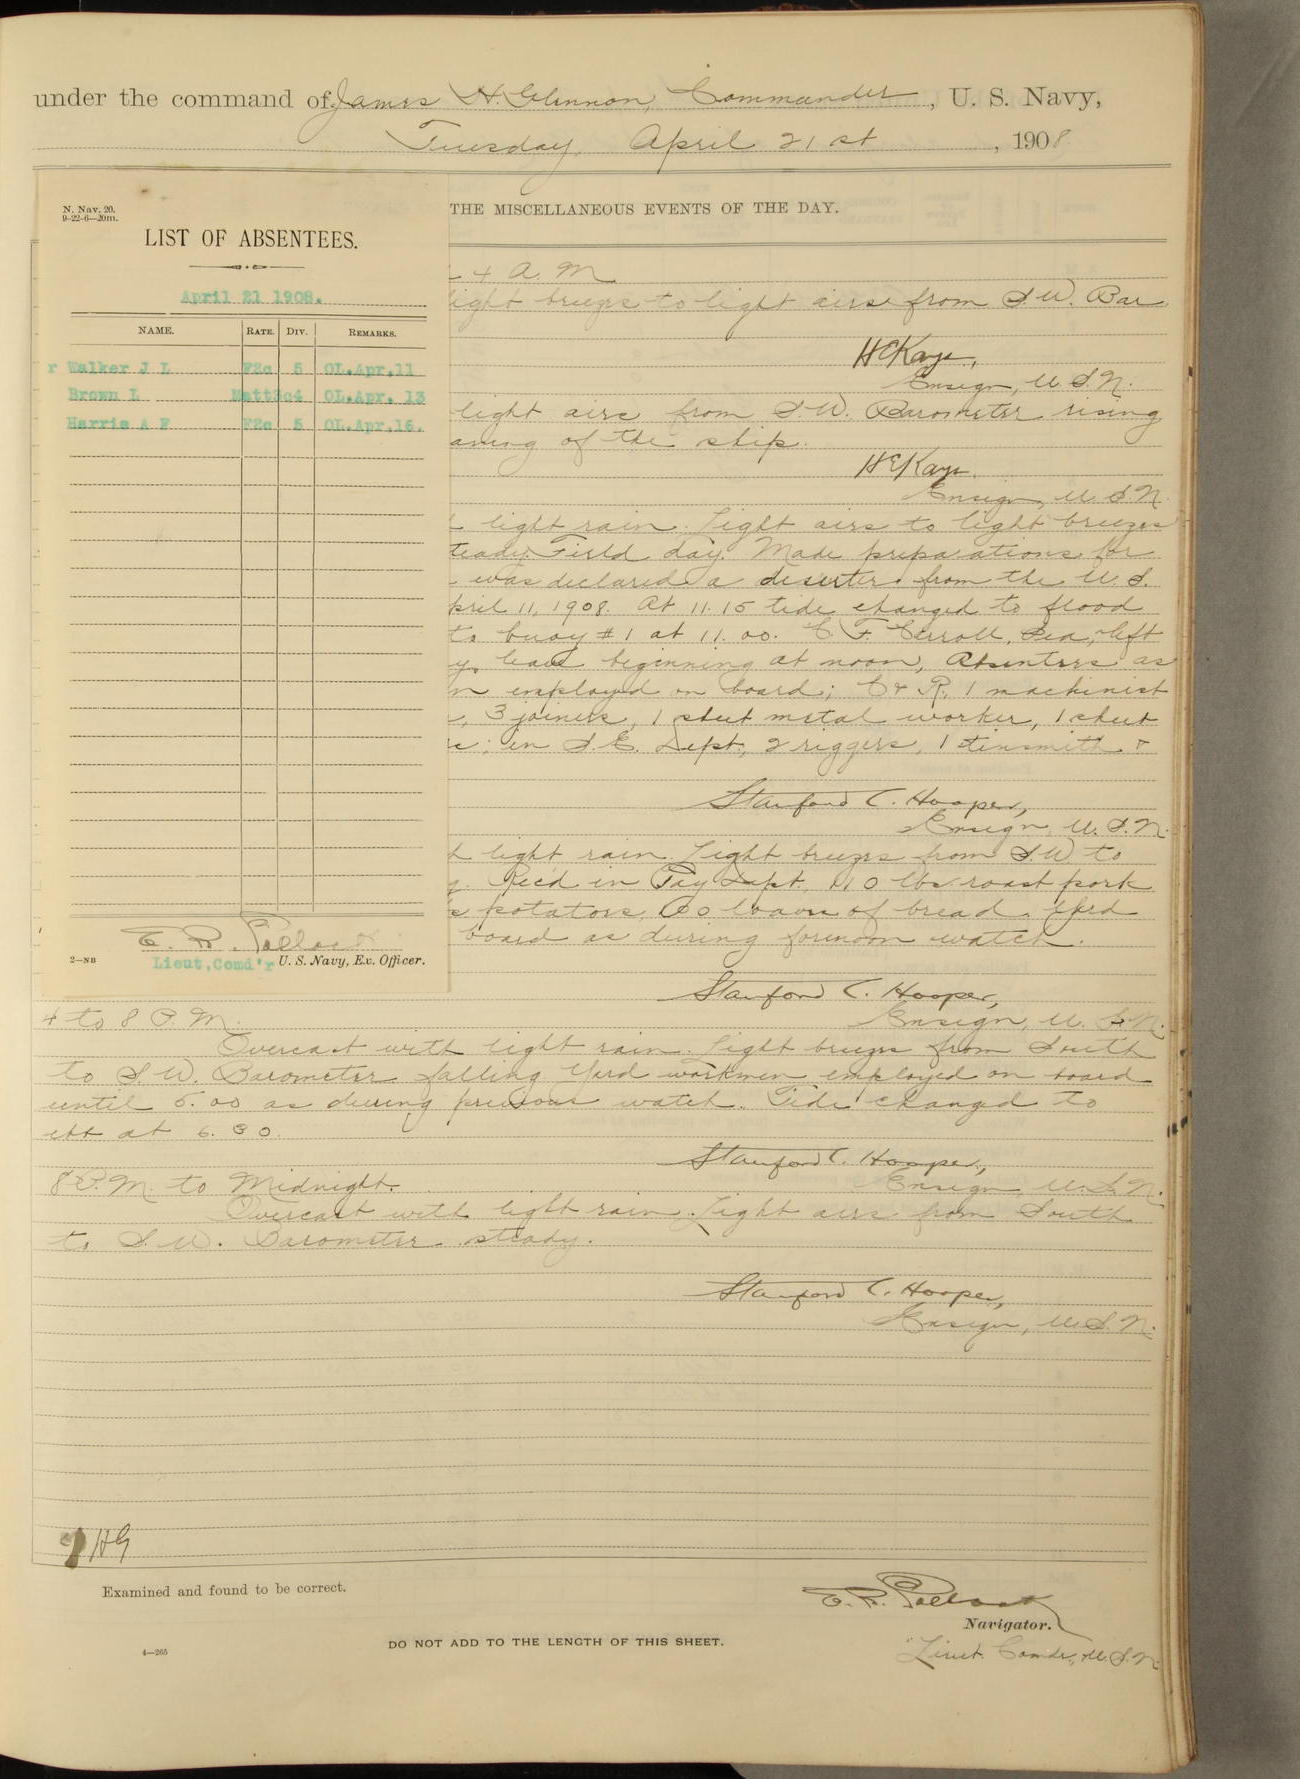 under the command of James H. Glennon, Commander, U. S. Navy,
Tuesday, April 21st, 1908
N. Nav. 20.
9-22-6—20m.
LIST OF ABSENTEES.
April 21 1908.
NAME. RATE. DIV. REMARKS.
r Walker J L F2c 5 OL.Apr.11
Brown L Matt3c4 OL.Apr. 13
Harris A F F2c 5 OL.Apr.16.
E. R. Pollock
Lieut.Comd'r U. S. Navy, Ex. Officer.
2—NB
THE MISCELLANEOUS EVENTS OF THE DAY.
4 A. M
light breezes to light airs from S.W. Bar
H E Kays,
Ensign, U.S.N.
light airs from S.W. Barometer rising
aning of the ship.
H E Kays
Ensign, U.S.N.
light rain. Light airs to light breezes
teady. Field day. Made preparations for
was declared a deserter from the U.S.
pril 11, 1908. At 11.15 tide changed to flood
to buoy #1 at 11.00. C. F. Carroll, Sea, left
y. leave beginning at noon, Absentees as
n employed on board; C & R. 1 machinist
, 3 joiners, 1 sheet metal worker, 1 sheet
s; in S.E. Dept, 2 riggers, 1 tinsmith &
Stanford C. Hooper,
Ensign, U.S.N.
light rain. Light breezes from S.W. to
Rec'd in Pay Dept. 110 lbs roast pork
s potatoes, 60 loaves of bread. Yard
board as during forenoon watch.
Stanford C. Hooper,
Ensign, U.S.N.
4 to 8 P.M.
Overcast with light rain. Light breezes from South
to S.W. Barometer falling. Yard workmen employed on board
until 5.00 as during previous watch. Tide changed to
ebb at 6.30.
Stanford C. Hooper,
Ensign, U.S.N.
8 P.M. to Midnight.
Overcast with light rain. Light airs from South
to S.W. Barometer steady.
Stanford C. Hooper,
Ensign, U.S.N.
JHG
Examined and found to be correct.
E. R. Pollock
Navigator.
Lieut. Comdr., U.S.N.
4—265
DO NOT ADD TO THE LENGTH OF THIS SHEET.